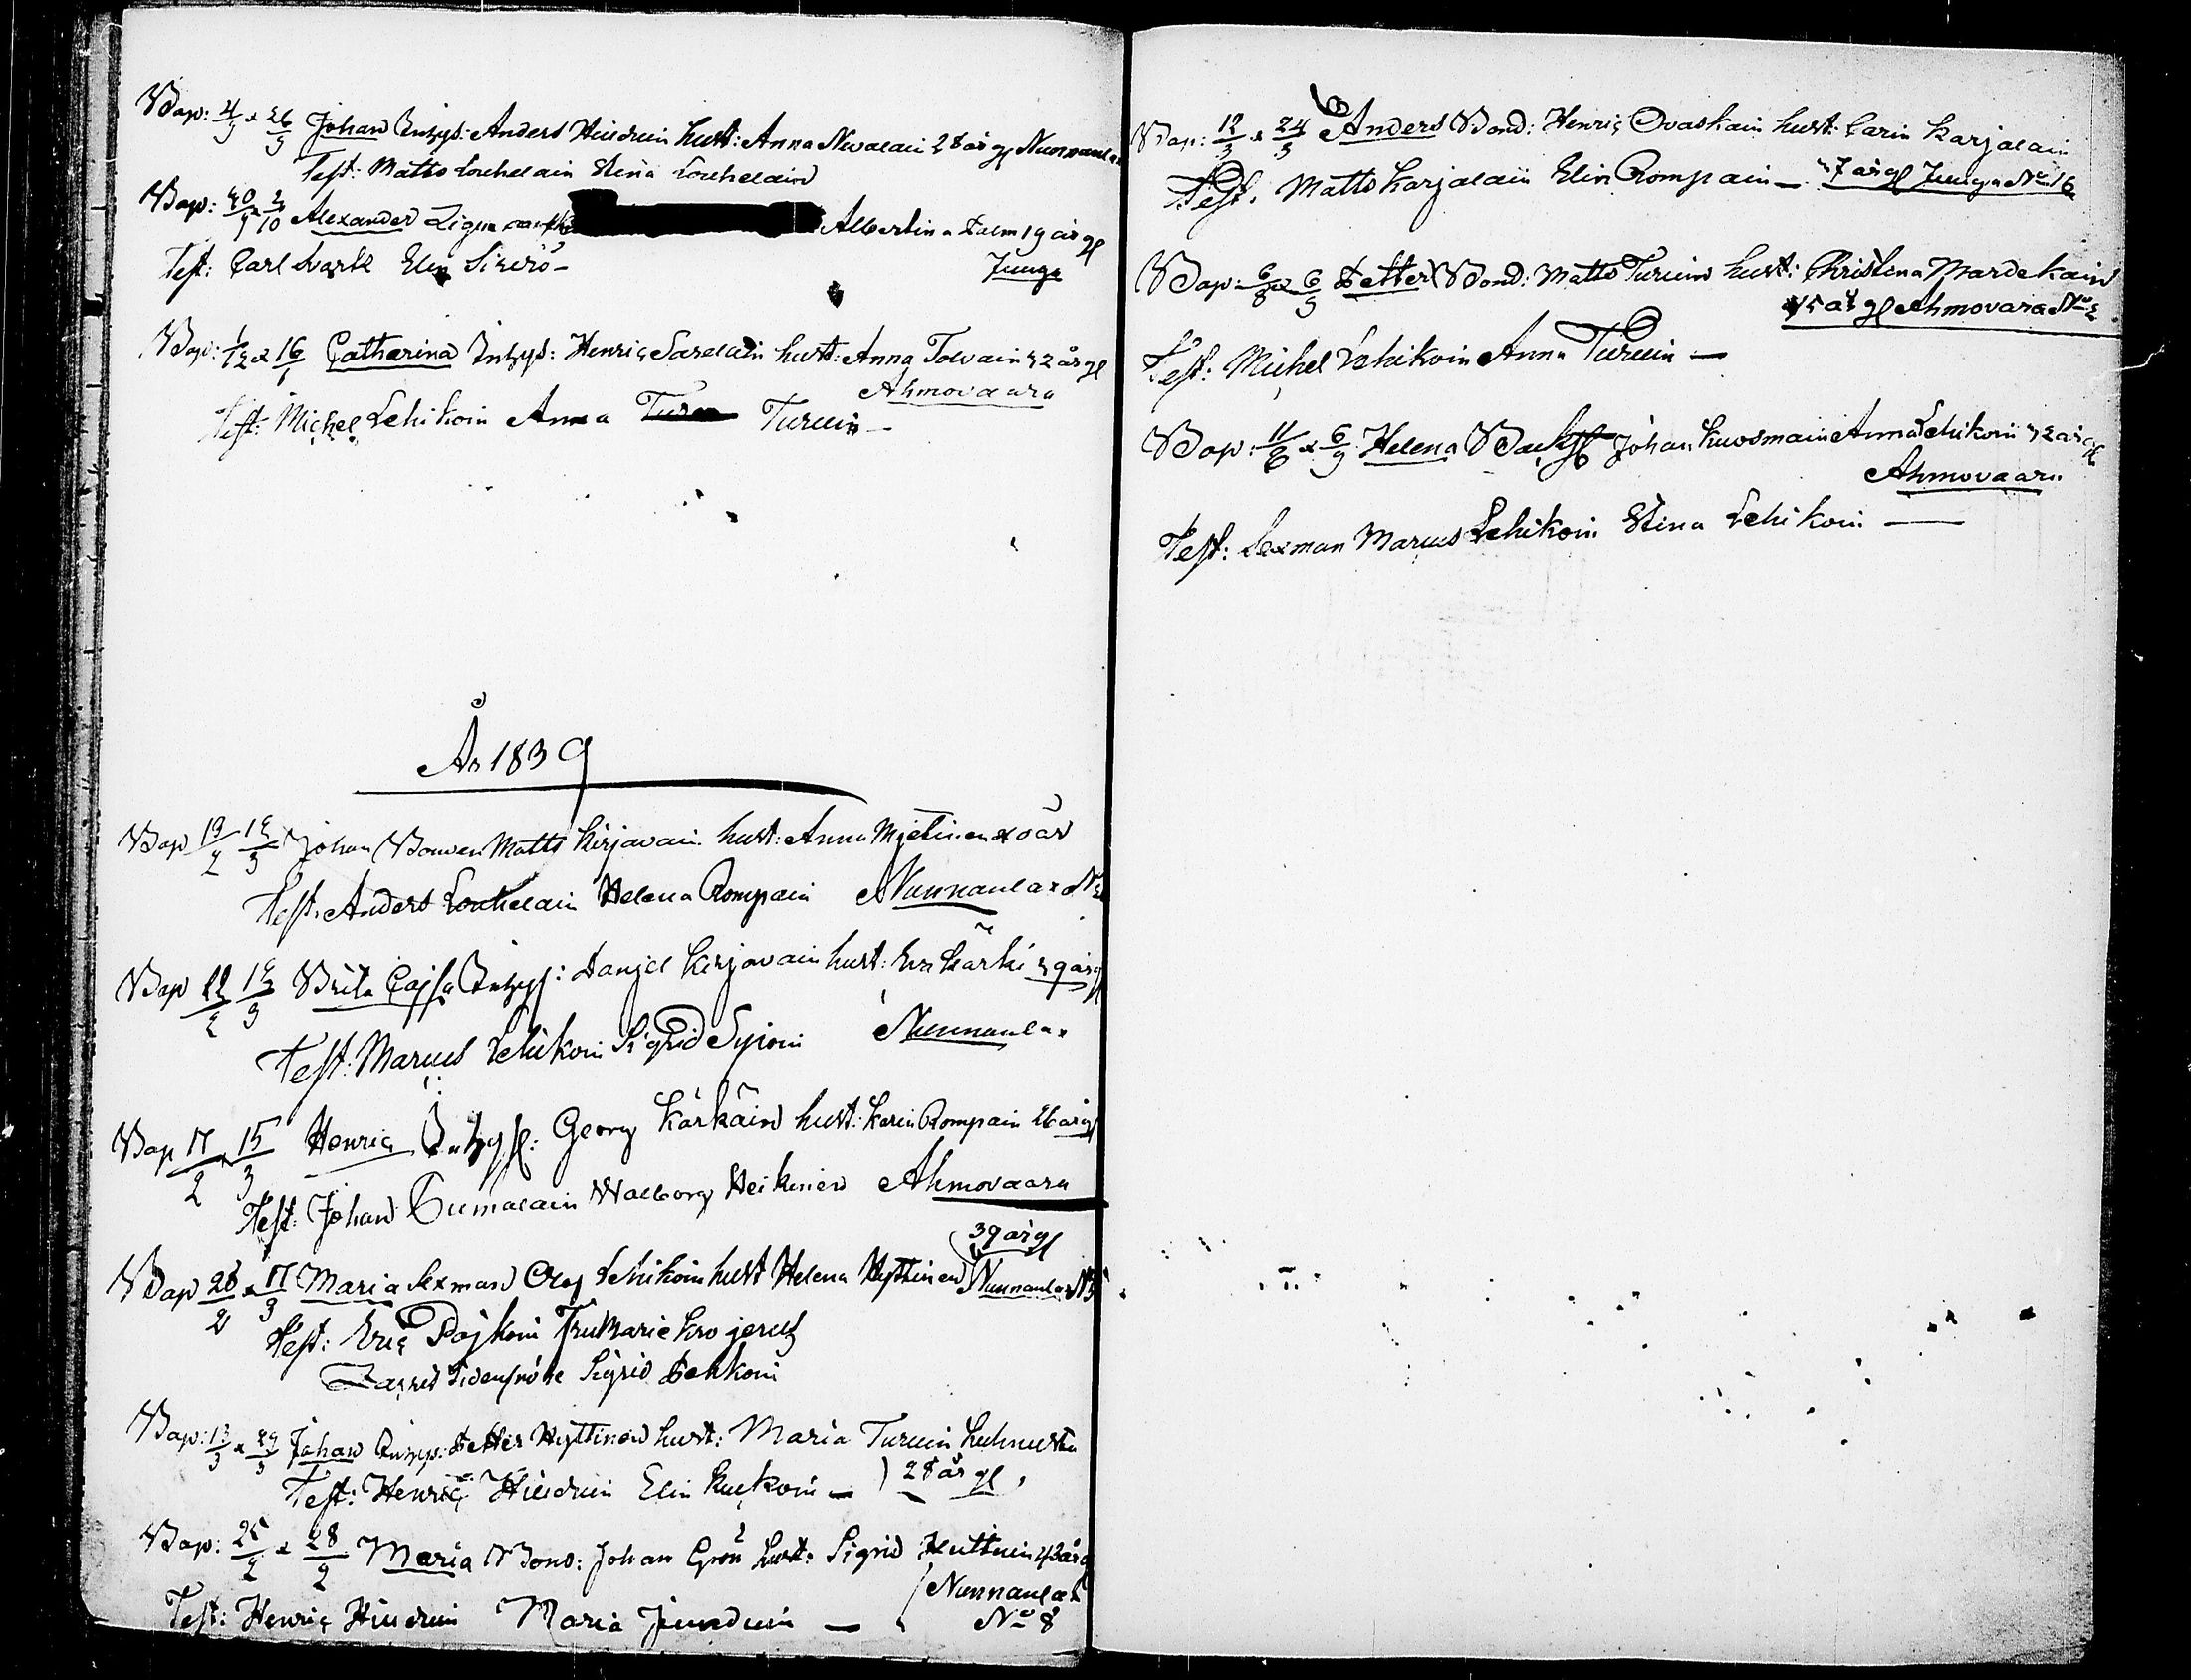 Bap: 4/9 x 26/9 Johan Inhys: Anders Hiirduin hust: Anna Nevalain 28 år gl Nunnanla
Test: Matts Louhelain Stina Louhelain
Bap: 2/10 Alexander Albertina Palm 19 år gl
Test: Carl Svartt Elin Juuga
Bap: 1/12 x 16/1 Catharina Inhys: Henric Sarelain hust: Anna Tolvain 32 år gl
Ahmovaara
Test: Michel Lehikoin Anna Turuin
År 1839
Bap 19/2 12/3 Johan Bonden Matts Kirjavain hust: Anna Mjetinen 40 år
Test: Anders Louhelain Helena Rompain Nunnanlax
Bap 22/2 12/3 Brita Cajsa Inhys: Danjel Kirjavain hust: Eva Kärki 39 år gl
Test: Marcus Lehikoin Sigrid Nunnanlax
Bap 17/2 15/3 Henric Inhys: Georg Kärkäin hust: Karin Rompain 26 år gl
Test: Johan Walborg Heikinen Ahmovaara
39 år gl
Bap 28/2 x 17/3 Maria Sexman Olof Lehikoin hust Helena Hyttinen Nunnanlax
Test: Eric Pojkoin Fru Marie Krogerus
Sigrid
Bap: 13/3 x 24/3 Johan Inhys: Petter Hyttinen hust: Maria Turuin Kuhnusta
Test: Henric Hiirduin Elin 28 år gl
Bap: 25/2 x 28/2 Maria Bond: Johan Grön hust: Sigrid Huttuin 43 år gl
Nunnanlax
Test: Henric Hiirduin Maria No 8
Bap: 12/3 x 24/3 Anders Bond: Henric Ovaskain hust: Carin Karjalain
Test. Matts Karjalain Elin Rompain — 27 år gl Juuga No 16
Bap: 6/8 x 6/9 Petter Bond: Matts Turuin hust: Christina Mardekain
45 år gl Ahmovara No 2
Test: Michel Lehikoin Anna Turuin —
Bap: 11/8 x 6/9 Helena Johan Kuosmain Anna Lehikoin 32 år gl
Ahmovaara
Test: Sexman Marcus Lehikoin Stina Lehikoin —